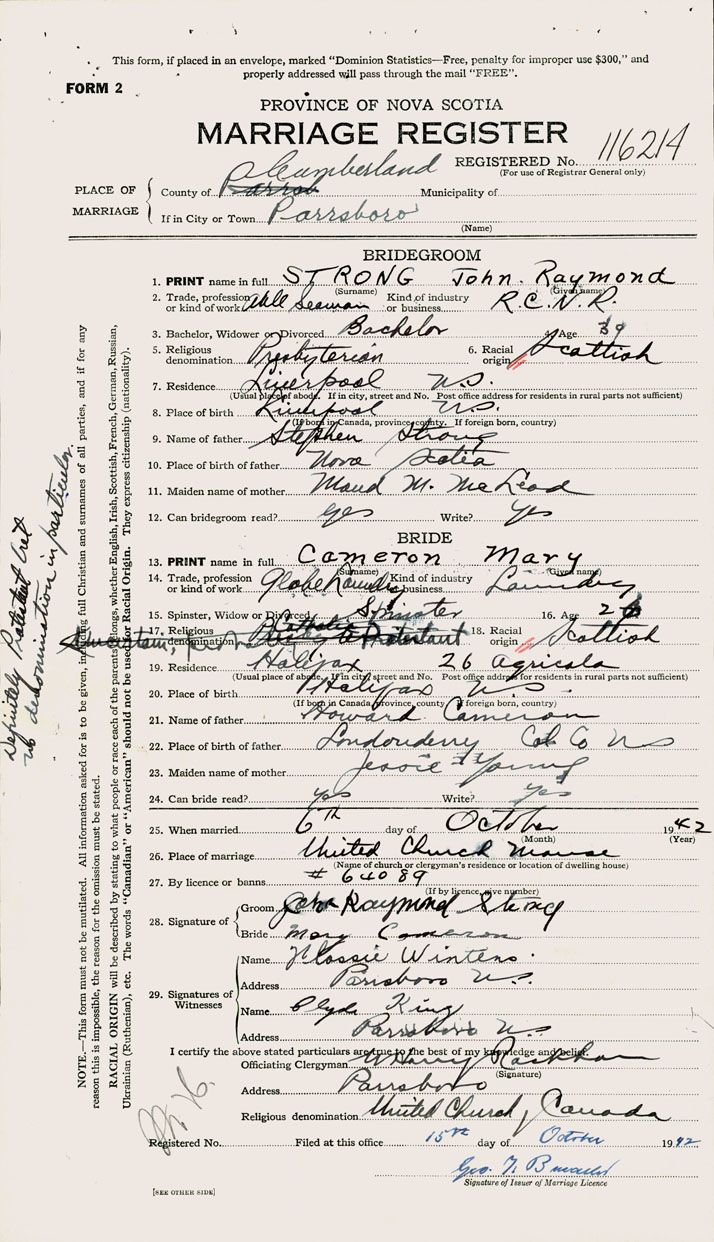 This form, if placed in an envelope, marked "Dominion Statistics—Free, penalty for improper use $300," and
properly addressed will pass through the mail "FREE".
FORM 2
PROVINCE OF NOVA SCOTIA
MARRIAGE REGISTER
REGISTERED No. 116214
(For use of Registrar General only)
PLACE OF MARRIAGE
County of Cumberland Municipality of
If in City or Town Parrsboro
(Name)
BRIDEGROOM
1. PRINT name in full STRONG John Raymond
(Surname) (Given name)
2. Trade, profession or kind of work Able Seaman Kind of industry or business R.C.N.R.
3. Bachelor, Widower or Divorced Bachelor 4. Age 39
5. Religious denomination Presbyterian 6. Racial origin Scottish
7. Residence Liverpool N.S.
(Usual place of abode. If in city, street and No. Post office address for residents in rural parts not sufficient)
8. Place of birth Liverpool N.S.
(If born in Canada, province, county. If foreign born, country)
9. Name of father Stephen Strong
10. Place of birth of father Nova Scotia
11. Maiden name of mother Maud M. McLeod
12. Can bridegroom read? yes Write? yes
BRIDE
13. PRINT name in full Cameron Mary
(Surname) (Given name)
14. Trade, profession or kind of work Globe Laundry Kind of industry or business Laundry
15. Spinster, Widow or Divorced Spinster 16. Age 26
17. Religious denomination Protestant 18. Racial origin Scottish
19. Residence Halifax 26 Agricola
(Usual place of abode. If in city, street and No. Post office address for residents in rural parts not sufficient)
20. Place of birth Halifax N S
(If born in Canada, province, county. If foreign born, country)
21. Name of father Howard Cameron
22. Place of birth of father Londonderry Col Co N S
23. Maiden name of mother Jessie Young
24. Can bride read? yes Write? yes
25. When married 6th day of October 1942
(Month) (Year)
26. Place of marriage United Church Manse
(Name of church or clergyman's residence or location of dwelling house)
27. By licence or banns # 64089
(If by licence, give number)
28. Signature of
Groom John Raymond Strong
Bride Mary Cameron
29. Signatures of Witnesses
Name Flossie Winters
Address Parrsboro N.S.
Name Clyde King
Address Parrsboro N S
I certify the above stated particulars are true to the best of my knowledge and belief.
Officiating Clergyman
(Signature)
Address Parrsboro
Religious denomination United Church, Canada
Registered No. Filed at this office 15th day of October 1942
Geo. T.
Signature of Issuer of Marriage Licence
[SEE OTHER SIDE]
NOTE.—This form must not be mutilated. All information asked for is to be given, including full Christian and surnames of all parties, and if for any
reason this is impossible, the reason for the omission must be stated.
RACIAL ORIGIN will be described by stating to what people or race each of the parents belongs, whether English, Irish, Scottish, French, German, Russian,
Ukrainian (Ruthenian), etc. The words "Canadian" or "American" should not be used for Racial Origin. They express citizenship (nationality).
Definitely Protestant but
no denomination in particular.